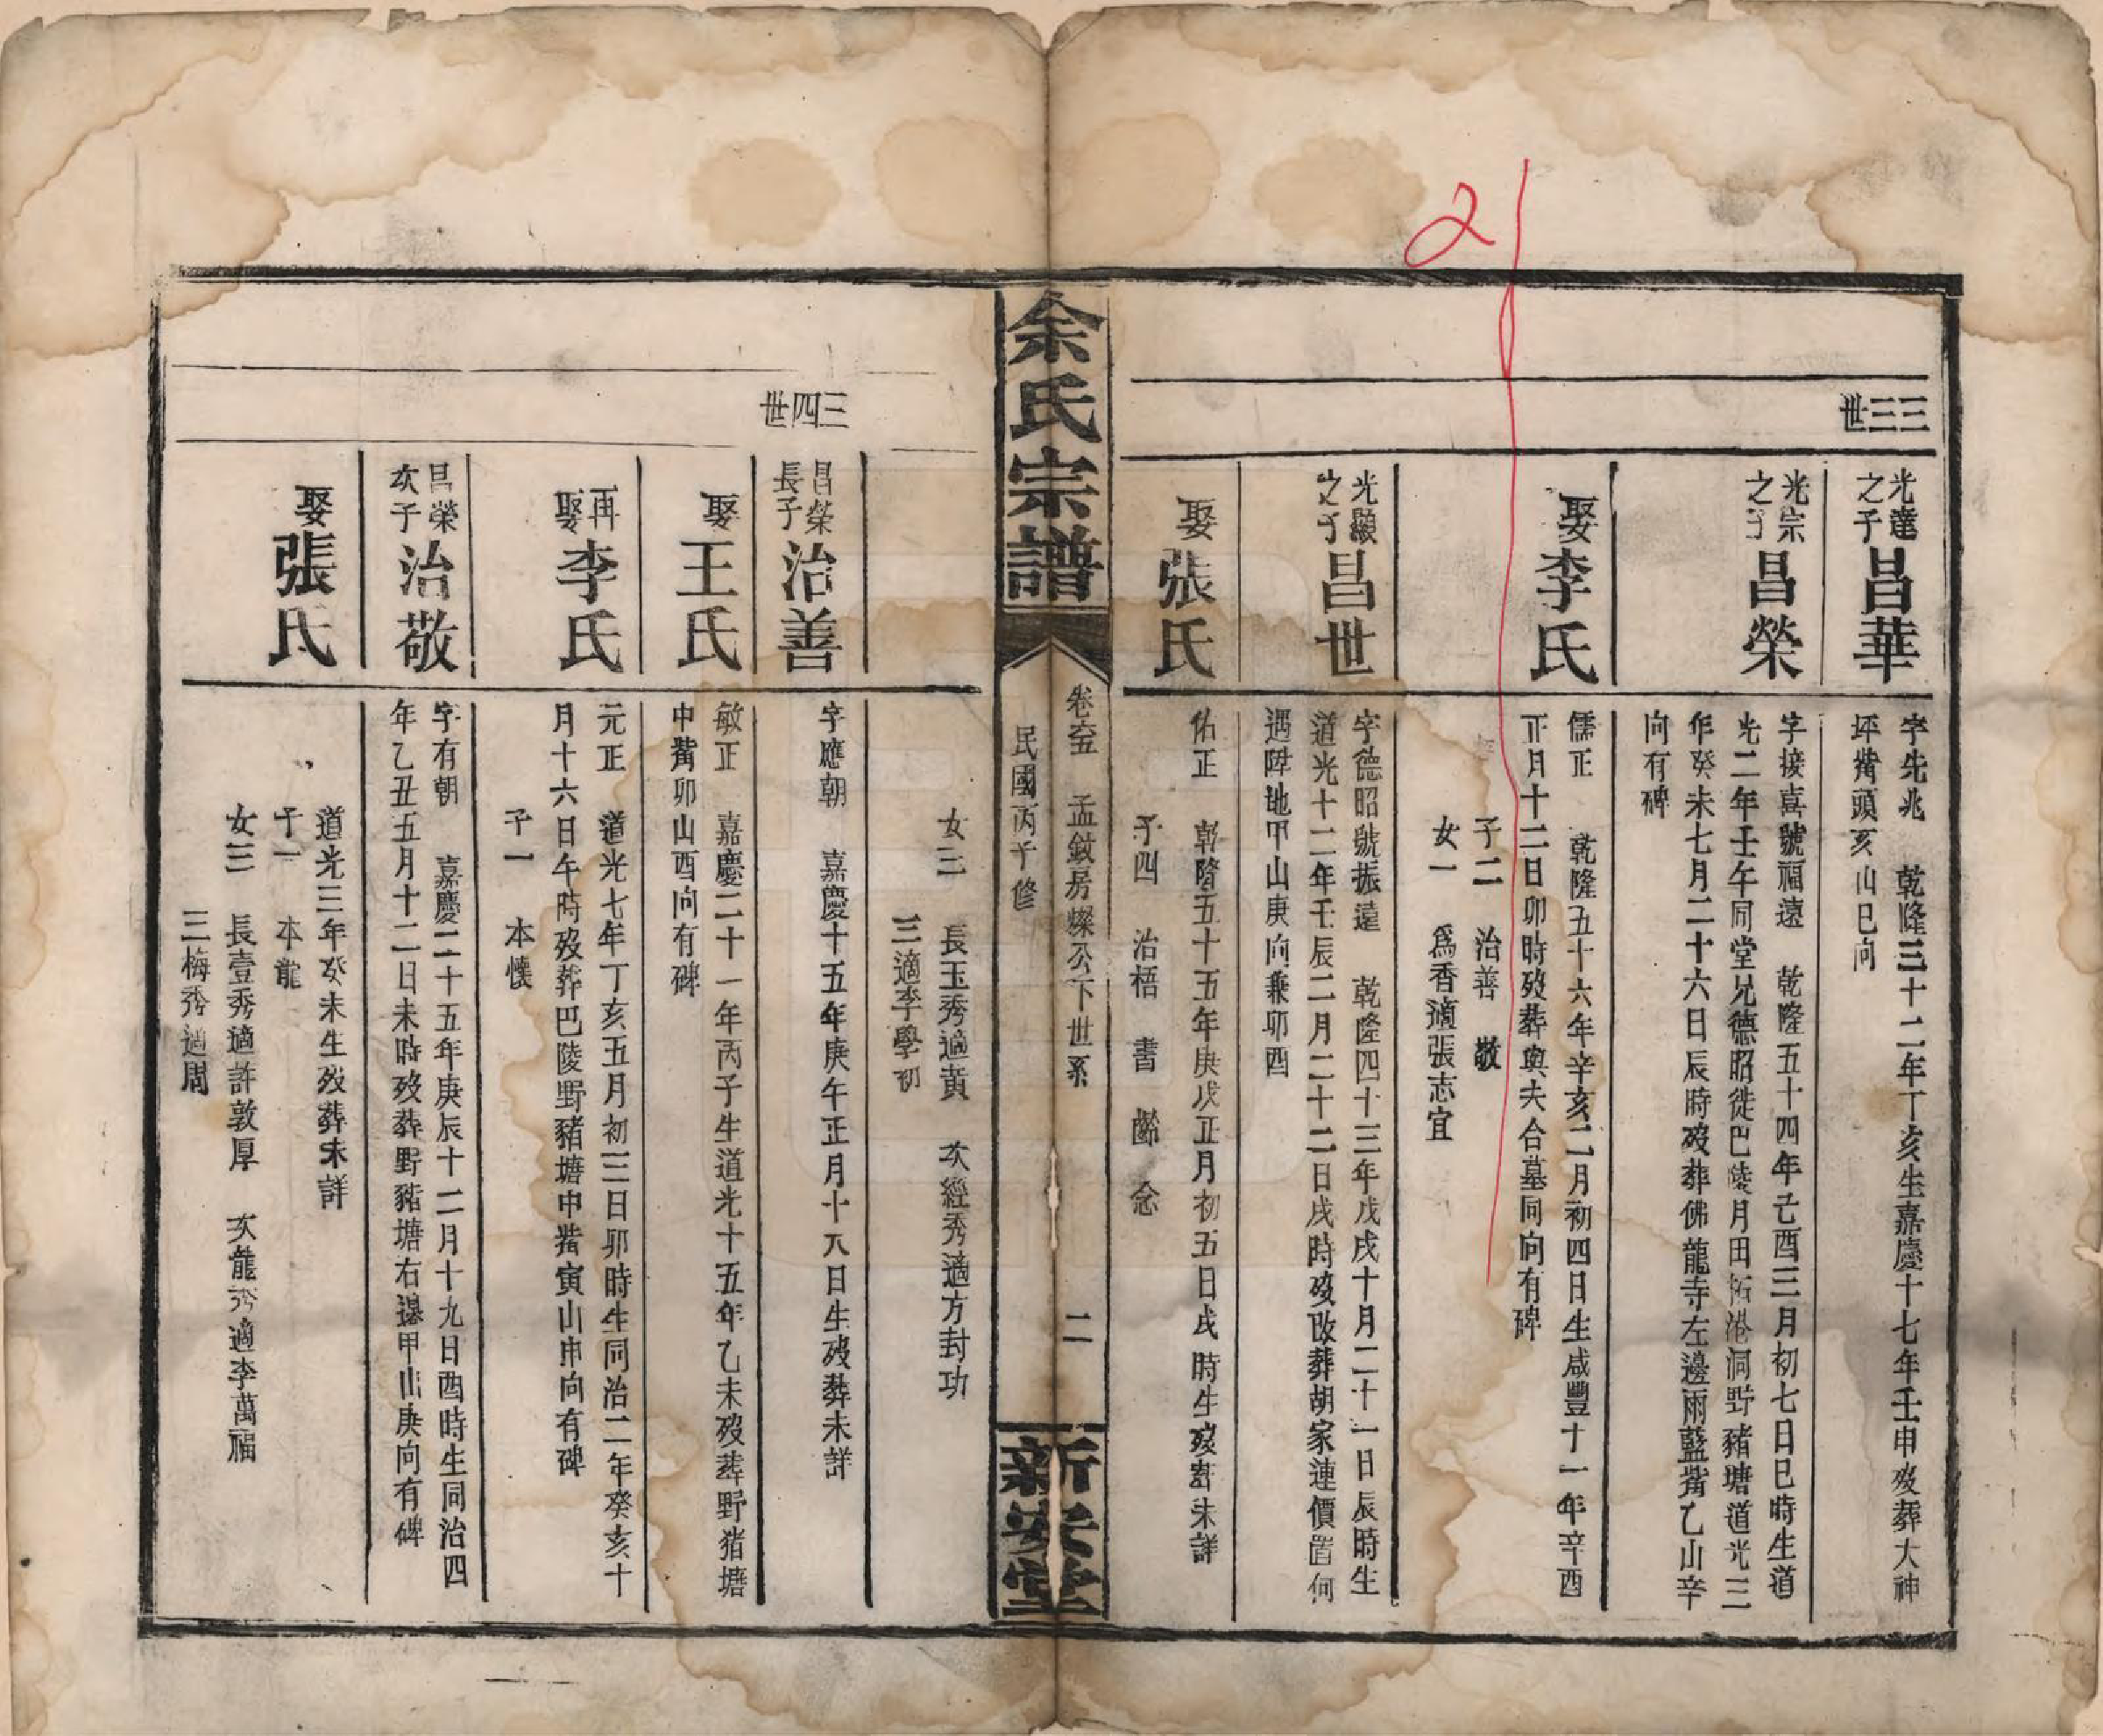 三三世
光達
之子
昌華
字先兆 乾隆三十二年丁亥生嘉慶十七年壬申歿葬大神
坪觜頭亥山巳向
光宗
之子
昌榮
字接喜號福遠 乾隆五十四年己酉三月初七日巳時生道
光二年壬午同堂兄德昭徙巴陵月田拓港洞野豬塘道光三
年癸未七月二十六日辰時歿葬佛龍寺左邊雨藍觜乙山辛
向有碑
娶
李氏
儒正 乾隆五十六年辛亥二月初四日生咸豐十一年辛酉
正月十二日卯時歿葬與夫合墓同向有碑
子二 治善 敬
女一 為香適張志宜
光顯
之子
昌世
字德昭號振遠 乾隆四十三年戊戌十月二十一日辰時生
道光十二年壬辰二月二十二日戌時歿改葬胡家連價置何
遇陞地甲山庚向兼卯酉
娶
張氏
佑正 乾隆五十五年庚戌正月初五日戌時生歿葬未詳
子四 治梧 書 齡 念
余氏宗譜
卷六五 孟欽房燦公下世系
民國丙子修
二
新安堂
女三 長玉秀適黃 次經秀適方封功
三適李學初
三四世
昌榮
長子
治善
字應朝 嘉慶十五年庚午正月十八日生歿葬未詳
娶
王氏
敏正 嘉慶二十一年丙子生道光十五年乙未歿葬野猪塘
中觜卯山酉向有碑
再
娶
李氏
元正 道光七年丁亥五月初三日卯時生同治二年癸亥十
月十六日午時歿葬巴陵野豬塘中觜寅山申向有碑
子一 本懷
昌榮
次子
治敬
字有朝 嘉慶二十五年庚辰十二月十九日酉時生同治四
年乙丑五月十二日未時歿葬野豬塘右邊甲山庚向有碑
娶
張氏
道光三年癸未生歿葬未詳
子一 本龍
女三 長壹秀適許敦厚 次龍秀適李萬福
三梅秀適周